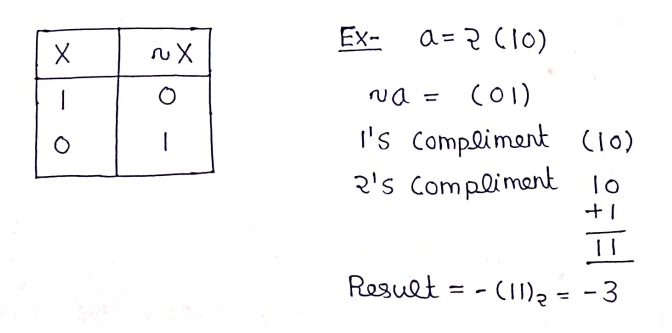 X ~X
1 0
0 1
Ex- a = 2 (10)
~a = (01)
1's Compliment (10)
2's Compliment 10
+1
11
Result = - (11)₂ = -3